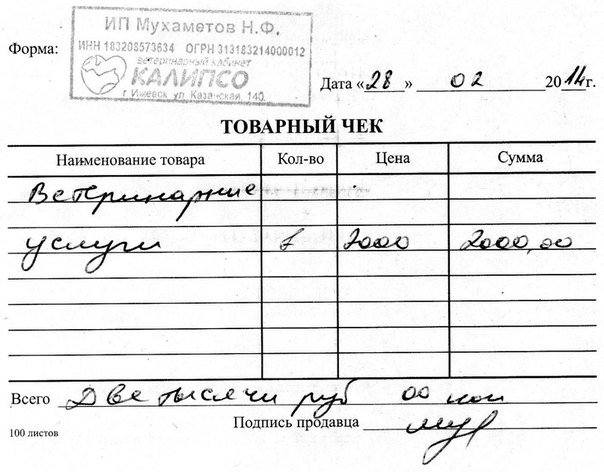 ИП Мухаметов Н.Ф.
Форма: ИНН 183208573634 ОГРН 313183214000012
ветеринарный кабинет
КАЛИПСО
г. Ижевск ул. Казанская, 140
Дата «28» 02 2014г.
ТОВАРНЫЙ ЧЕК
Наименование товара Кол-во Цена Сумма
Ветеринарные
услуги 1 2000 2000,00
Всего Две тысячи руб 00 коп
Подпись продавца
100 листов